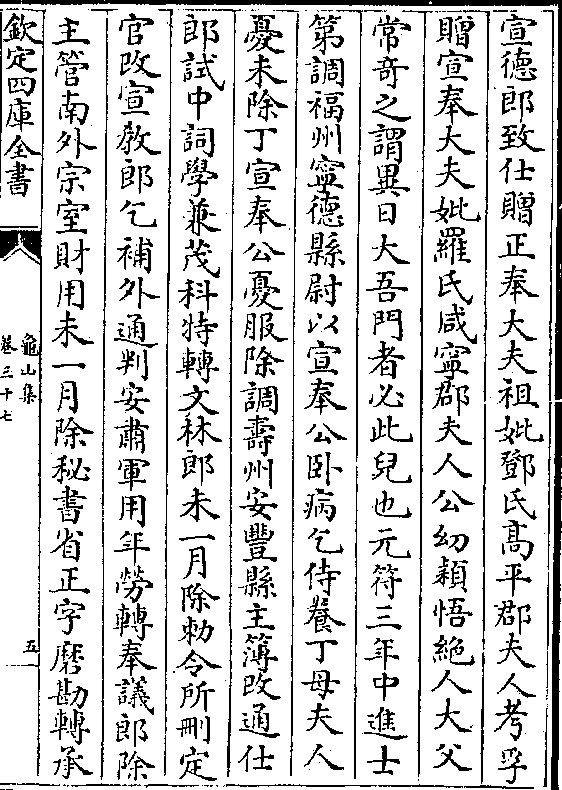 宣德郎致仕贈正奉大夫祖妣鄧氏高平郡夫人考孚
贈宣奉大夫妣羅氏咸寧郡夫人公幼穎悟絶人大父
常奇之謂異日大吾門者必此兒也元符三年中進士
第調福州寧德縣尉以宣奉公卧病乞侍養丁母夫人
憂未除丁宣奉公憂服除調壽州安豐縣主簿改通仕
郎試中詞學兼茂科特轉文林郎未一月除勅令所刪定
官改宣教郎乞補外通判安肅軍用年勞轉奉議郎除
主管南外宗室財用未一月除秘書省正字磨勘轉承
欽定四庫全書
龜山集
卷三十七
五